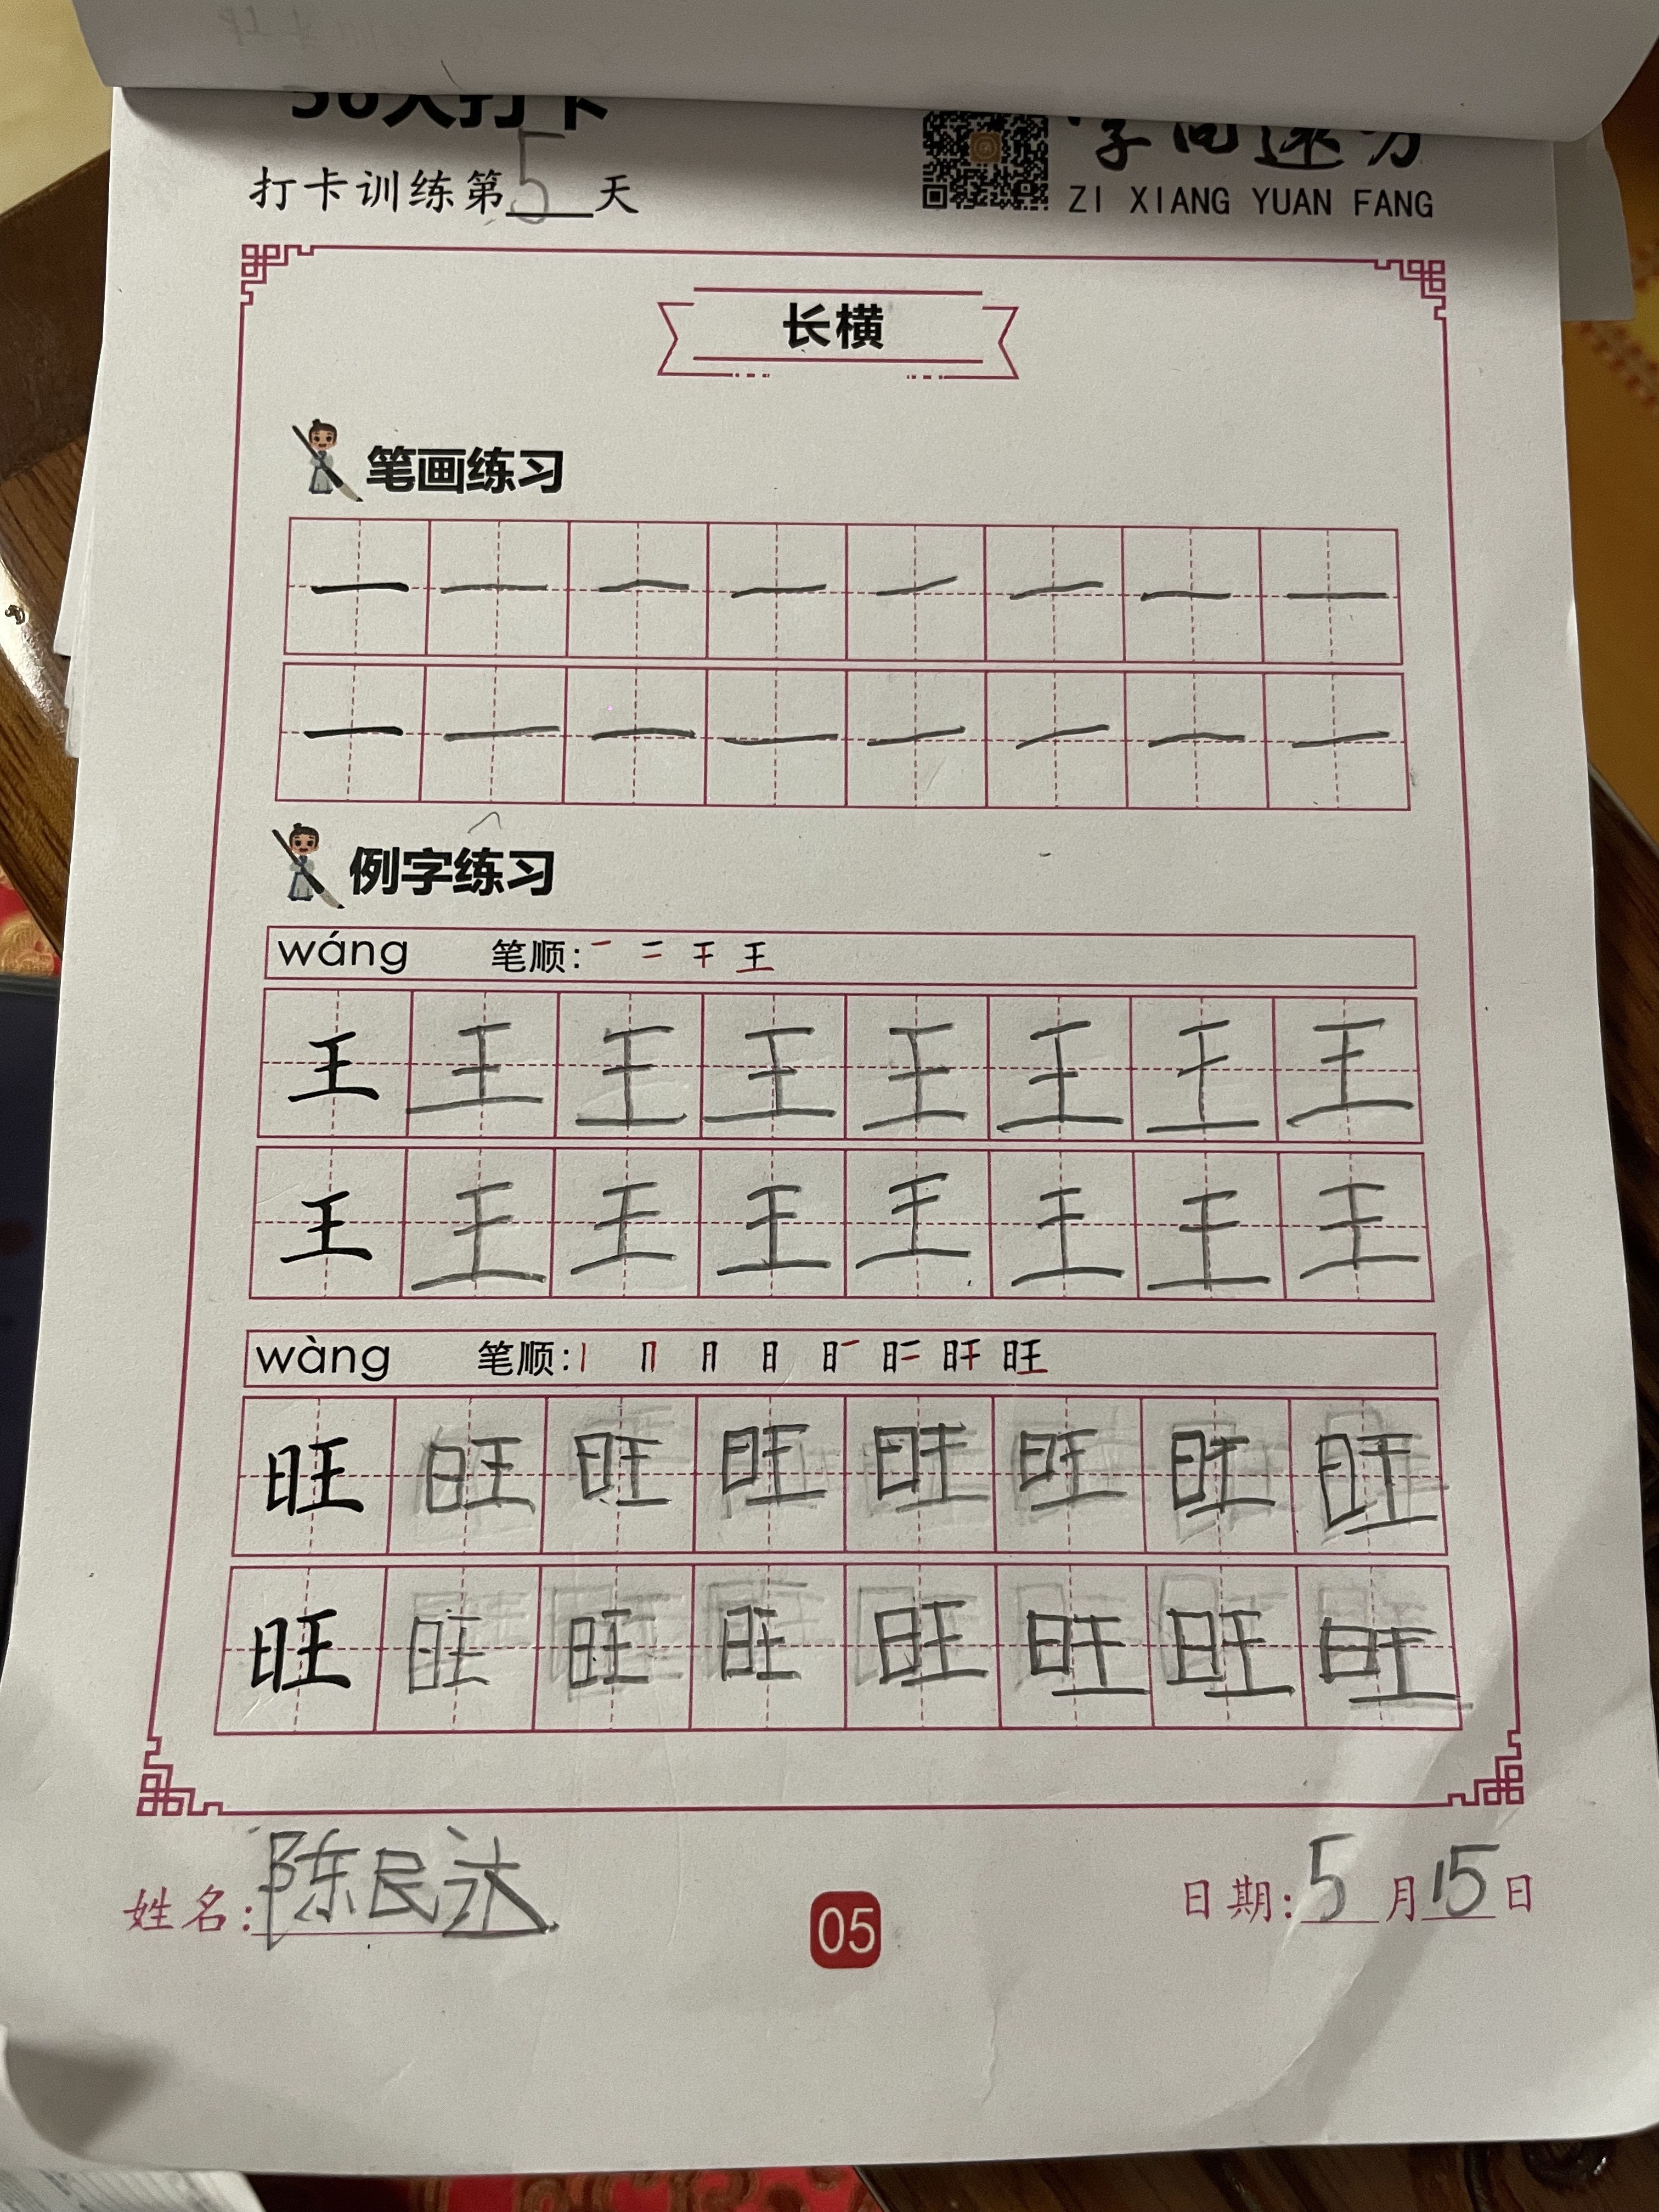 打卡训练第5天
ZI XIANG YUAN FANG
长横
笔画练习
一 一 一 一 一 一 一 一
一 一 一 一 一 一 一 一
例字练习
wáng 笔顺: 王
王 王 王 王 王 王 王 王
王 王 王 王 王 王 王 王
wàng 笔顺: 旺
旺 旺 旺 旺 旺 旺 旺 旺
旺 旺 旺 旺 旺 旺 旺 旺
姓名:陈民达
05
日期:5月15日